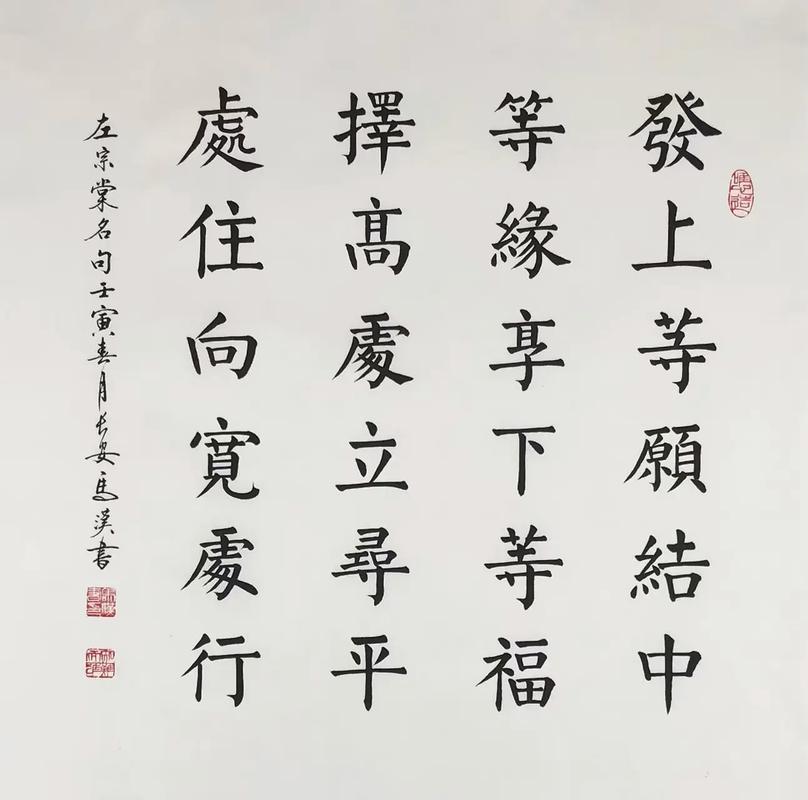 發上等願結中
等緣享下等福
擇高處立尋平
處住向寬處行
左宗棠名句壬寅春月長安馬漢書